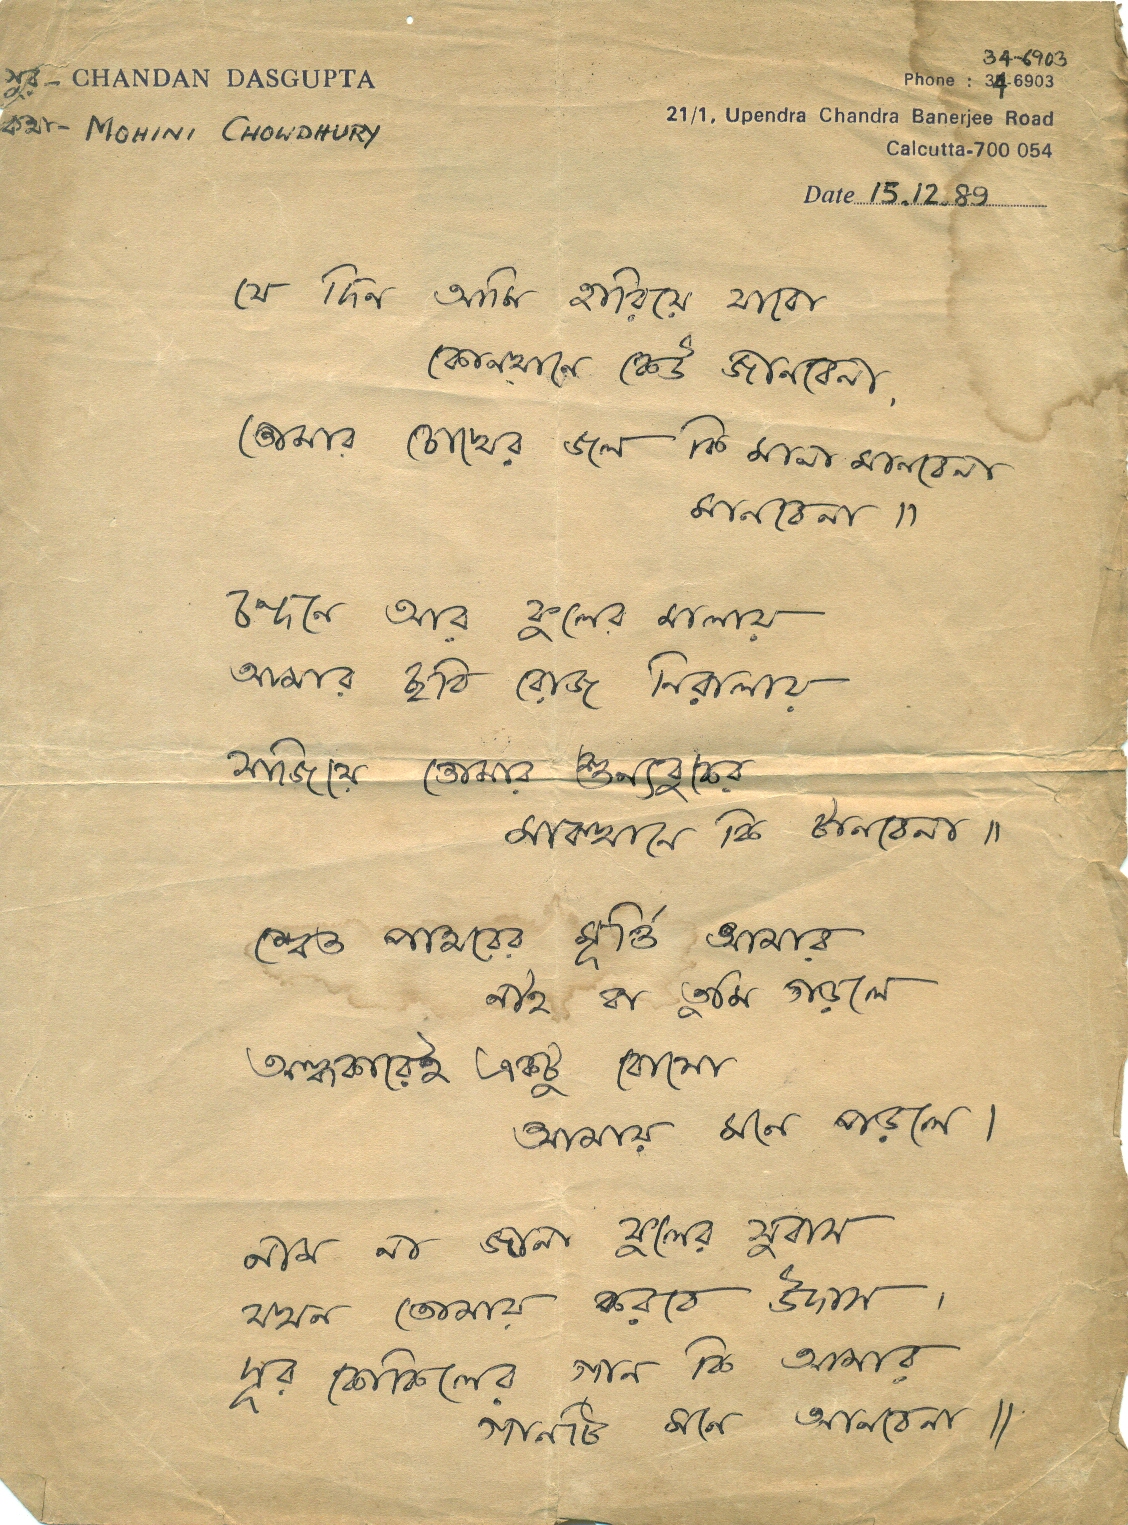 সুর - CHANDAN DASGUPTA
কথা - MOHINI CHOWDHURY
34-6903
Phone : 34-6903
21/1, Upendra Chandra Banerjee Road
Calcutta-700 054
Date 15.12.89
যে দিন আমি হারিয়ে যাবো
কোনখানে কেউ জানবেনা,
তোমার চোখের জলে কি মানা মানবেনা
মানবেনা ॥
চন্দনে আর ফুলের মালায়
আমার ছবি রোজ নিরালায়
সাজিয়ে তোমার শুন্যবুকের
মাঝখানে কি টানবেনা ॥
শ্বেত পাথরের মূর্ত্তি আমার
নাই বা তুমি গড়লে
অন্ধকারেই একটু বোসো
আমায় মনে পড়লে ।
নাম না জানা ফুলের সুবাস
যখন তোমায় করবে উদাস ,
দূর কোকিলের গান কি আমার
গানটি মনে আনবেনা ॥